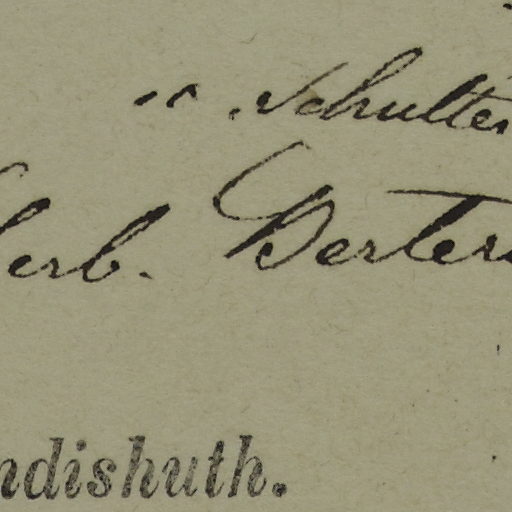 " Schulter
Herb. Oerter
ndishuth.